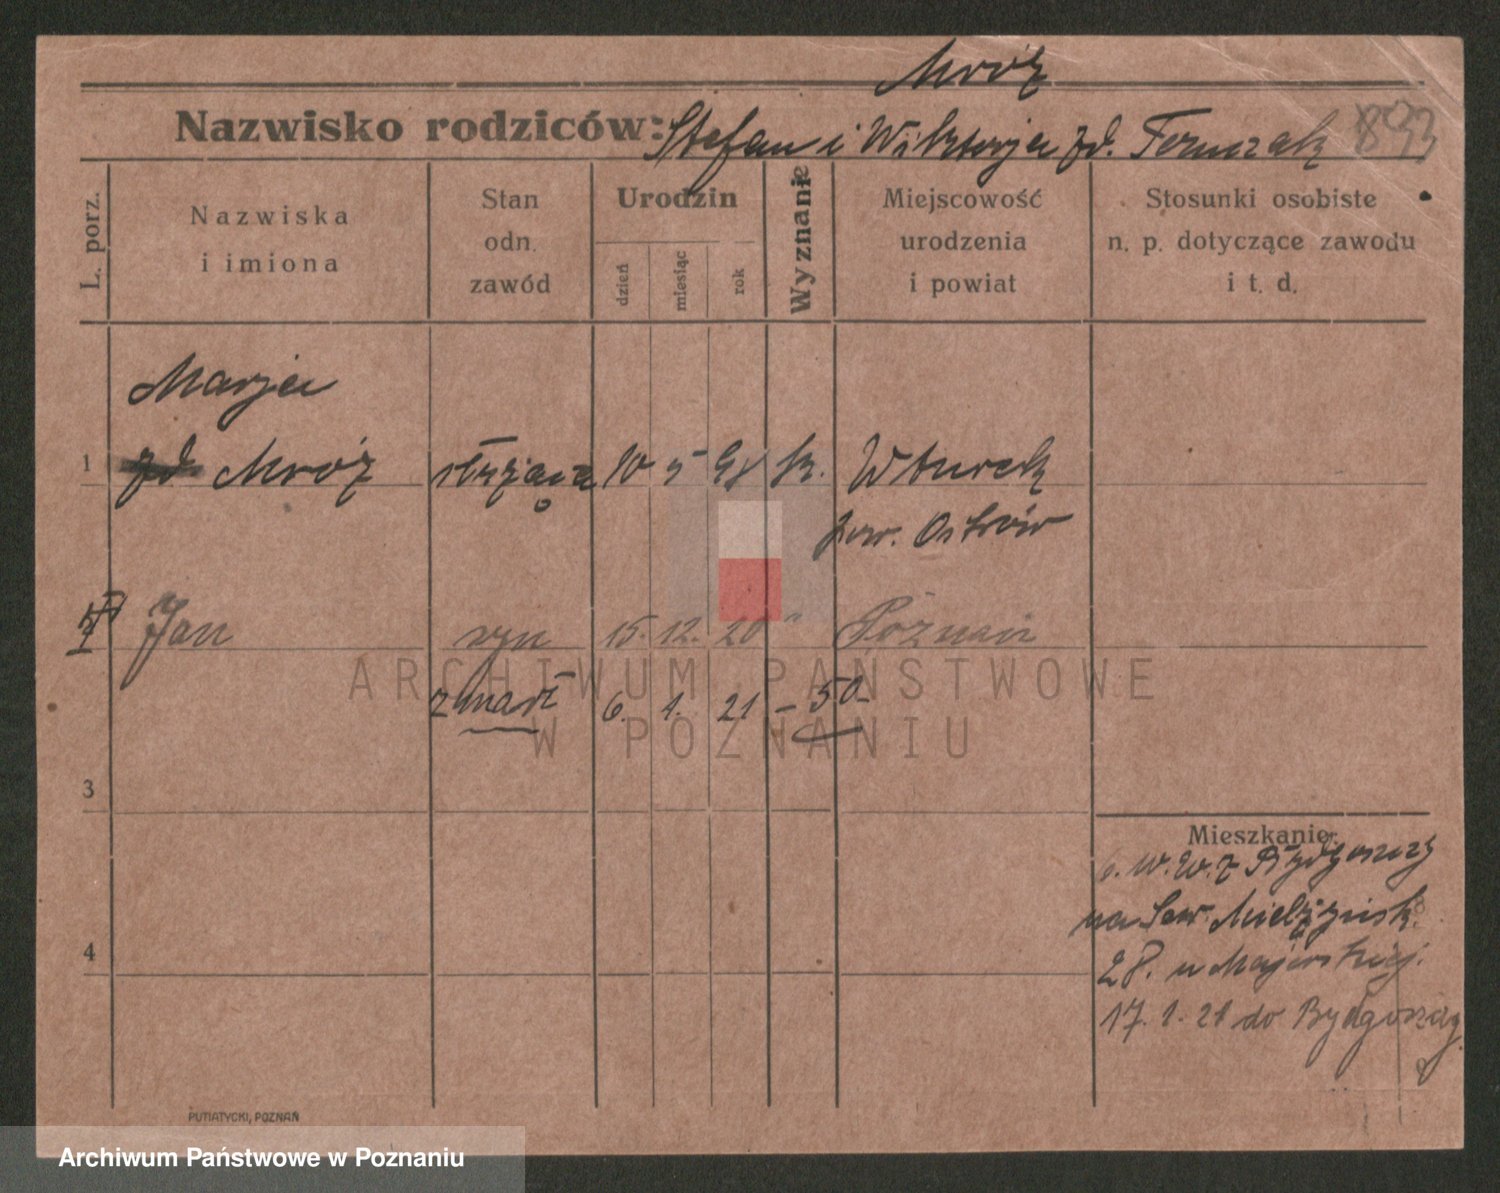 Mróz
Nazwisko rodziców: Stefan i Wiktorja zd.
L. porz.
Nazwiska
i imiona
Stan
odn.
zawód
Urodzin
dzień
miesiąc
rok
Wyznanie
Miejscowość
urodzenia
i powiat
Stosunki osobiste
n. p. dotyczące zawodu
i t. d.
Marja
1 zd Mróz służąca 10 5 98 k. Wturek
pow. Ostrów
Jan syn 15. 12. 20 " Poznań
zmarł 6. 1. 21 - 50 -
ARCHIWUM PAŃSTWOWE
W POZNANIU
3
Mieszkanie:
6. W. W. z Bydgoszczy
na Sew. Mielżyńsk.
4
28. u Majerskiej.
17. 1. 21 do Bydgoszczy
PUTIATYCKI, POZNAŃ
Archiwum Państwowe w Poznaniu